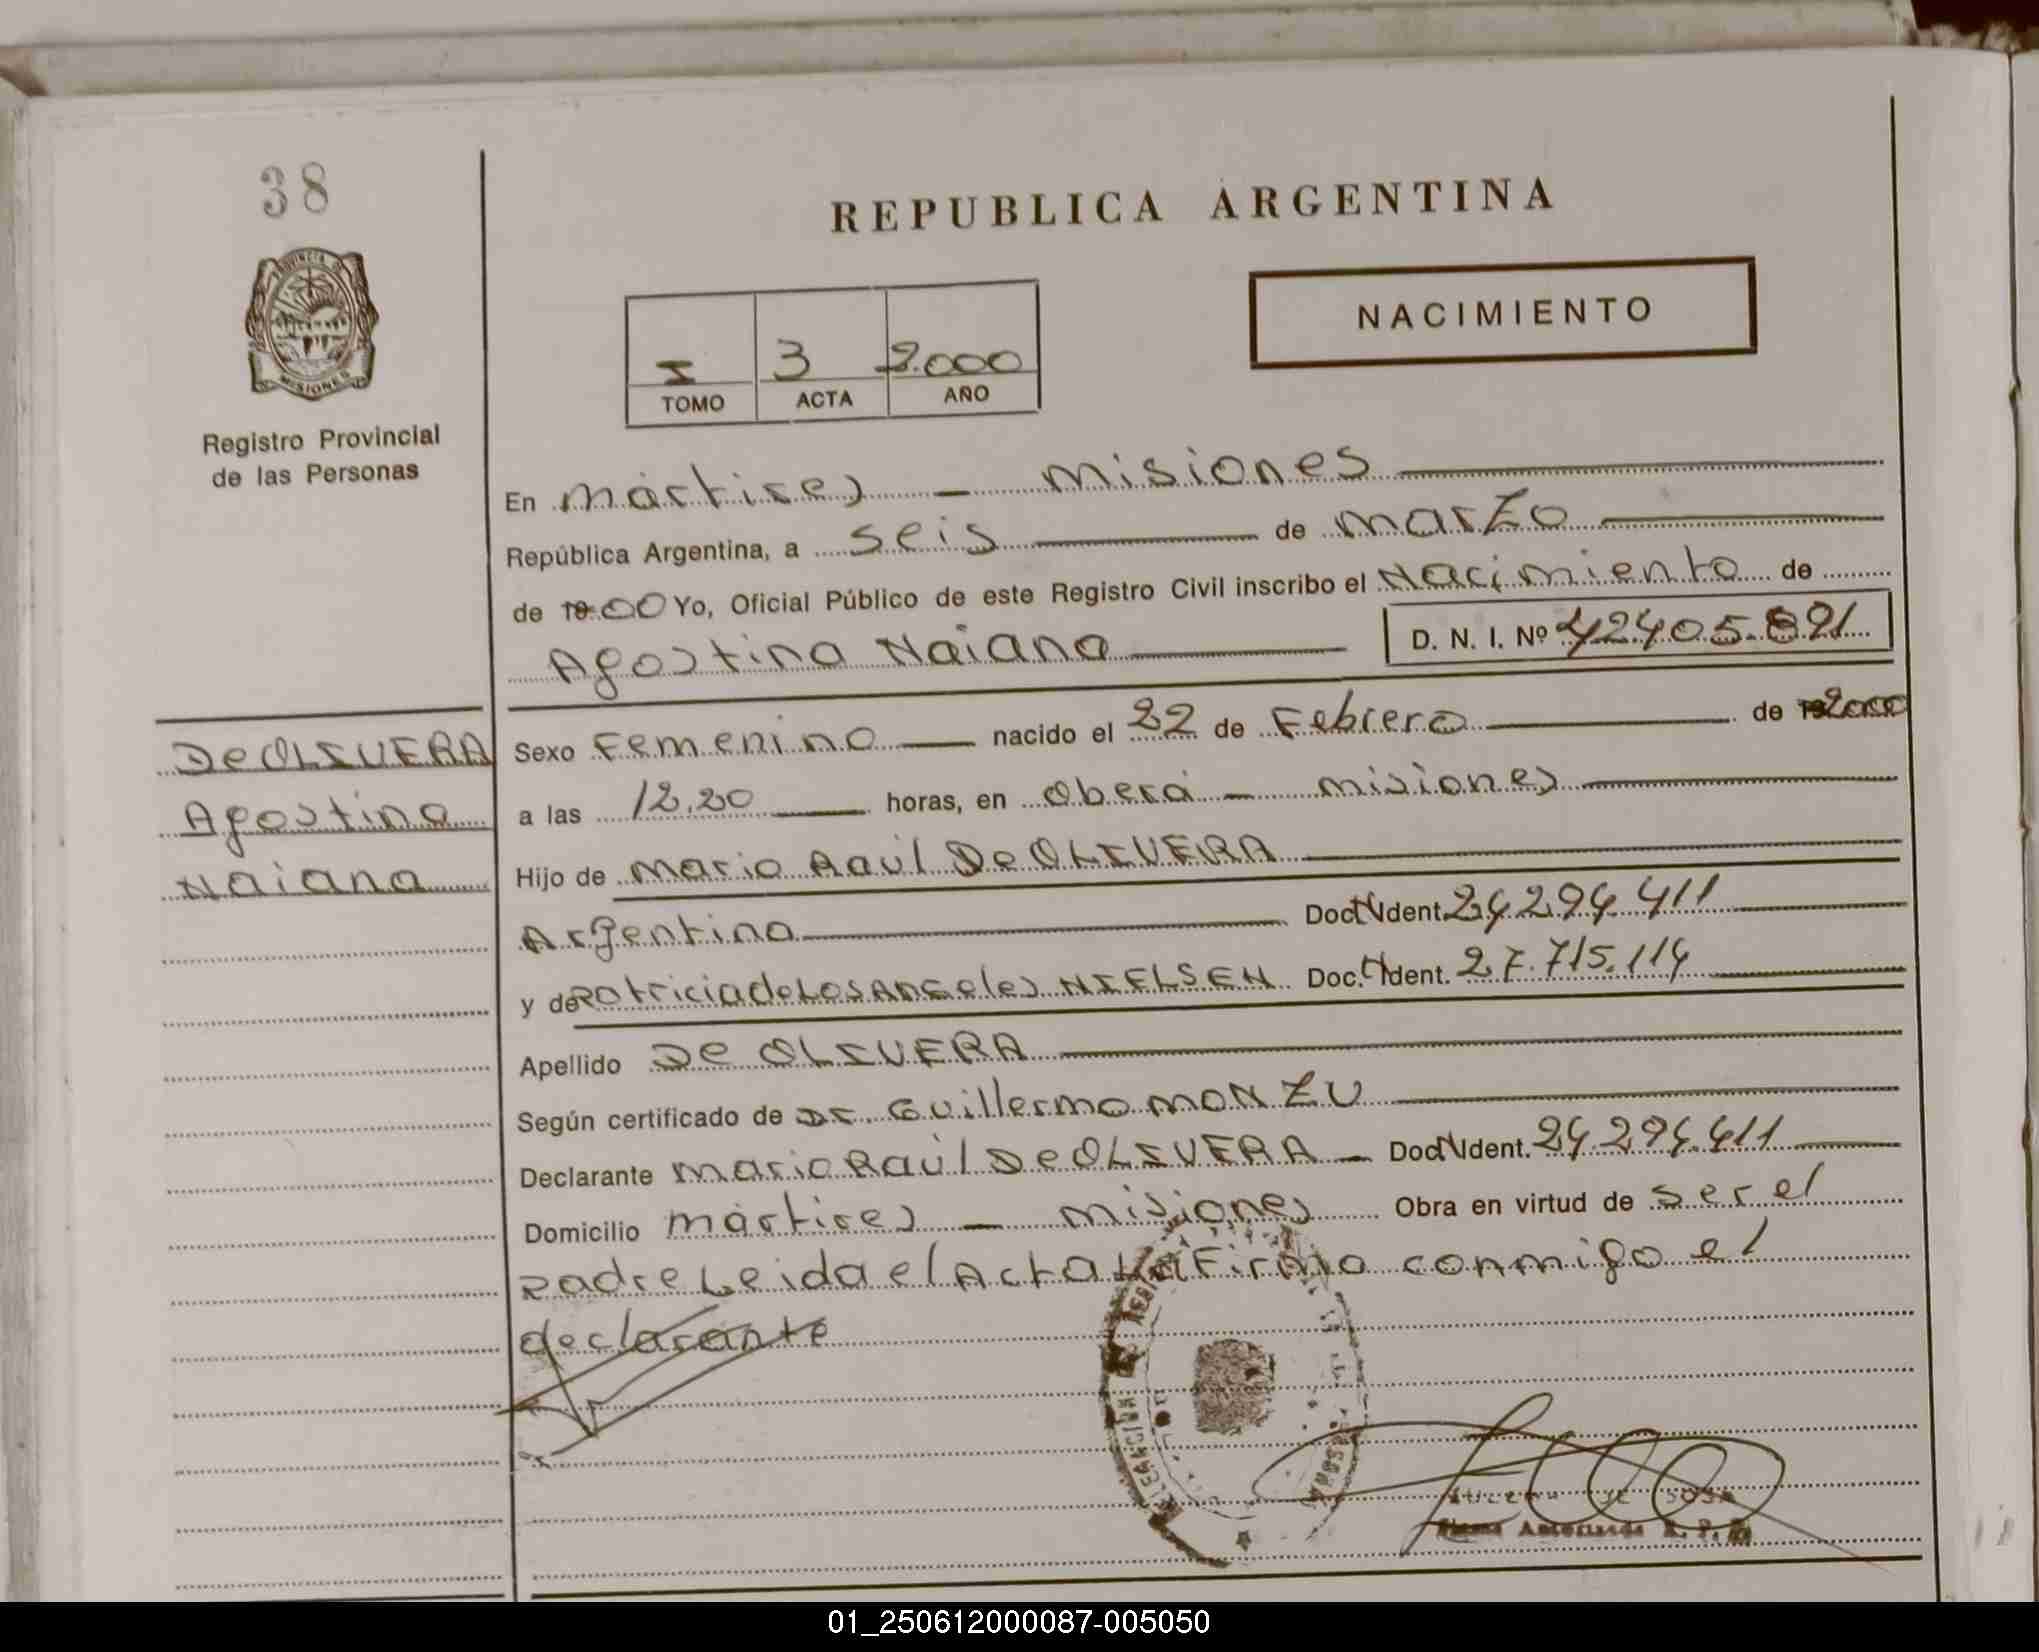 38
PROVINCIA DE
MISIONES
Registro Provincial
de las Personas
REPUBLICA ARGENTINA
NACIMIENTO
I 3 2.000
TOMO ACTA AÑO
En Mártires - Misiones
República Argentina, a seis de Marzo
de 19 00 Yo, Oficial Público de este Registro Civil inscribo el Nacimiento de
Agostina Naiana D. N. I. Nº 42405.891
DE OLIVERA
Agostina
Naiana
Sexo Femenino nacido el 22 de Febrero de 19 2000
a las 12.20 horas, en Oberá - Misiones
Hijo de Mario Raúl De OLIVERA
Argentina Doc.N Ident. 24.294.411
y de Patricia de Los Angeles NIELSEN Doc.N Ident. 27.715.114
Apellido De OLIVERA
Según certificado de Dr. Guillermo MONZU
Declarante Mario Raúl De OLIVERA - Doc.N Ident. 24.294.411
Domicilio Mártires - Misiones Obra en virtud de ser el
Padre Leida el Acta la Firma conmigo el
declarante
DE SOSA
Firma Autorizada R. P. P.
01_250612000087-005050